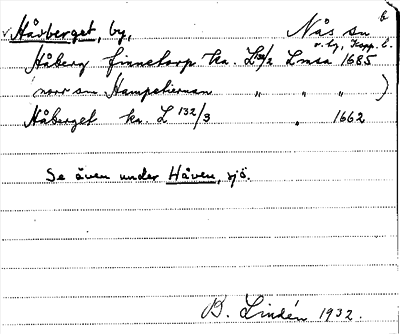 v Håvberget, by, Nås sn 6
v. bg, Kopp. l.
Håberg finnetorp ka. L 132/2 Lmsa 1685
(norr om Hampetiernan " " " )
Håberget ka. L 132/3 " 1662
Se även under Håven, sjö.
B. Lindén 1932.